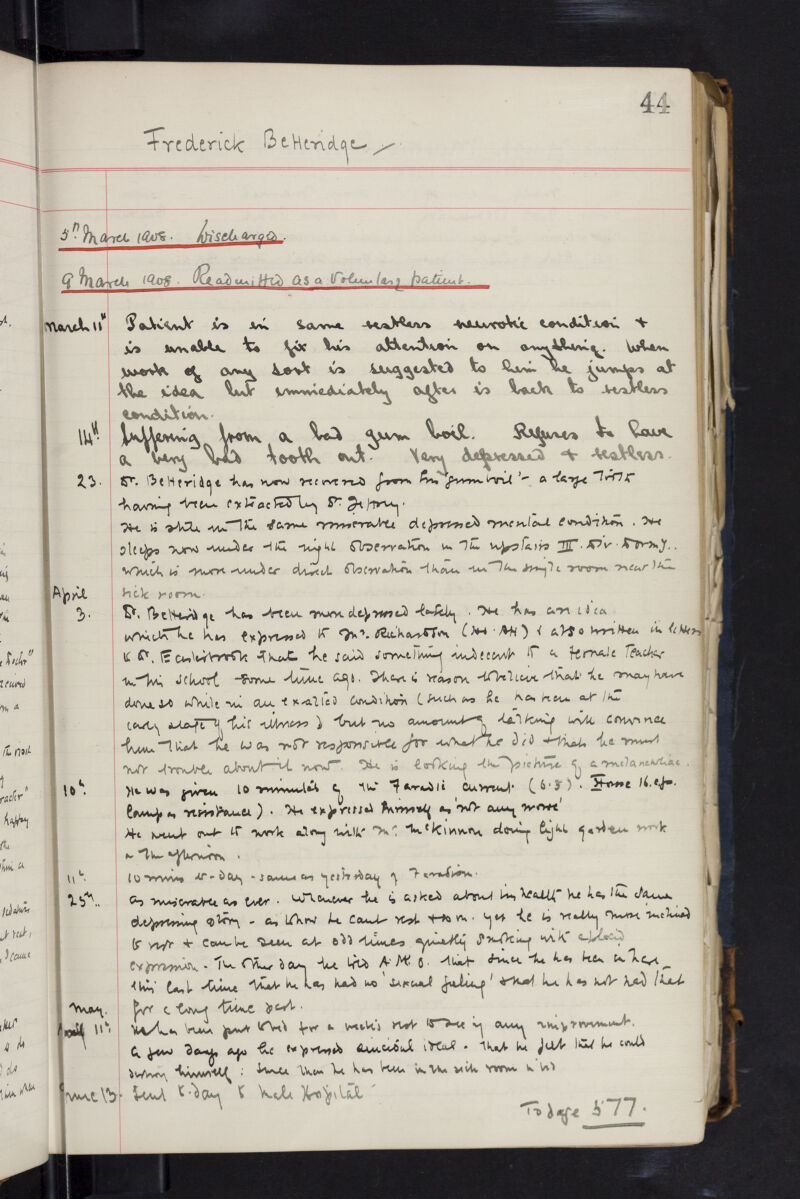 44
Frederick Betteridge
5th March 1908. Discharged.
9 March 1908. Readmitted as a Voluntary patient.
March 11th Patient is in same restless neurotic condition &
is unable to fix his attention on anything. When
work of any sort is suggested to him he jumps at
the idea but immediately after is back to restless
condition.
14th Suffering from a bad gum boil. Refuses to have
a very bad tooth out. Very depressed & restless.
23. Dr. Betteridge has now recovered from his 'gumboil' - a large tooth
having been extracted by Dr.
He is still in the same miserable depressed mental condition. He
sleeps now under the night observation in the upstairs III. Div. Dormy..
which is more under direct observation than in the single room near the
sick room.
April
3. Dr. Betteridge has been more depressed lately. He has an idea
which he has expressed to Mr. Richardson & also written in letters
to Dr. Easterbrook that he said something indecent to a female teacher
in his school some time ago. There is reason to believe that he may have
done so while in an exalted condition (such as he has been at the
early stage of his illness) but no amount of talking will convince
him that he was not responsible for what he did & that he must
not trouble about it now. He is looking the picture of a melancholiac.
10th. He was given 10 minutes of the Faradic current
lamp as resistance). He expressed himself as 'not any worse'
He went out to work along with Mr. McKinnon doing light garden work
in the afternoon.
11th. 10 mins to-day - same as yesterday of Faradism.
25th. As miserable as ever. Whenever he is asked about his health he has the same
depressing story - as to how he cant rest & so on. Yet he is really more inclined
to rest & can be seen at odd times quietly smoking with a placid
expression. The other day he told A.M.O. that since he has been in here
this last time that he has had no 'sexual feeling' & that he has not had that
for a long time past.
May
11th. He has been put to bed for a week's rest to see if any improvement.
A few days ago he expressed suicidal ideas - that he felt that he could
destroy himself: since then he has been in the sick room in bed
June 13. Sent to-day to Male Hospital
To page 577.